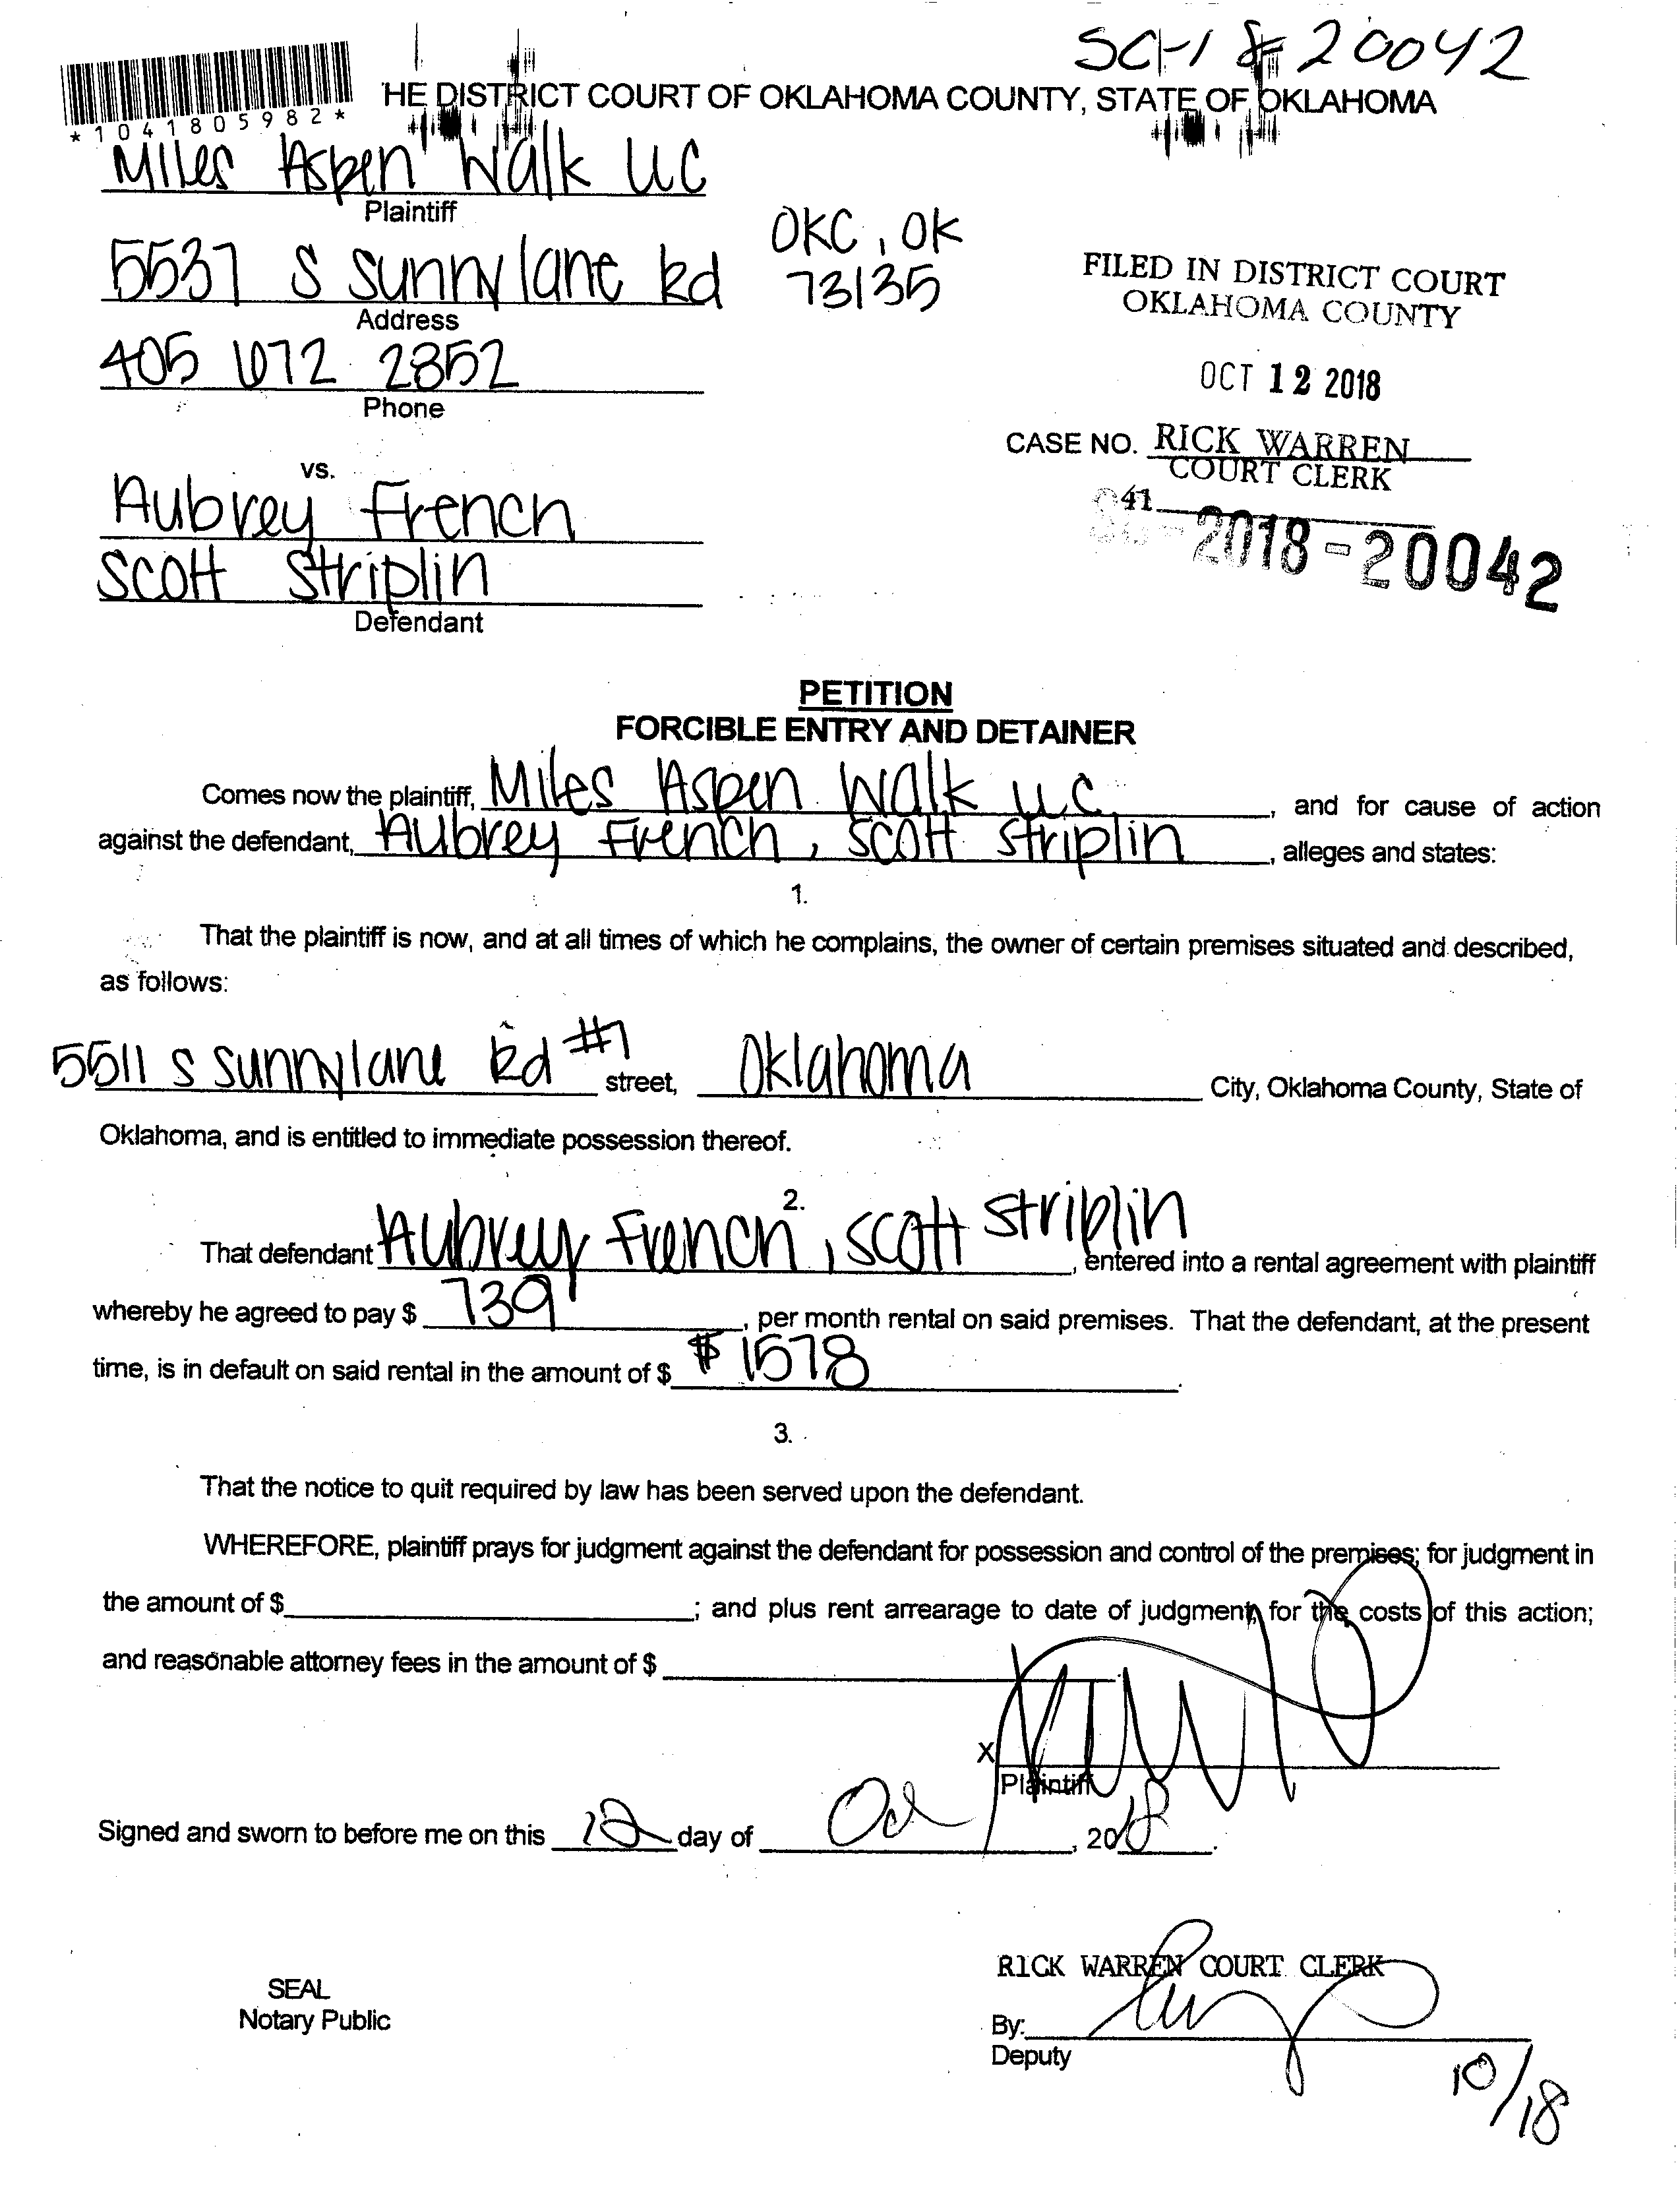 SC-18-20042
*1041805982*
HE DISTRICT COURT OF OKLAHOMA COUNTY, STATE OF OKLAHOMA
Miles Aspen Walk LLC
Plaintiff
5537 S Sunnylane Rd
OKC, OK
73135
Address
405 672 2352
Phone
FILED IN DISTRICT COURT
OKLAHOMA COUNTY
OCT 12 2018
CASE NO. RICK WARREN
COURT CLERK
41
2018-20042
vs.
Aubrey French
Scott Striplin
Defendant
PETITION
FORCIBLE ENTRY AND DETAINER
Comes now the plaintiff, Miles Aspen Walk LLC, and for cause of action
against the defendant, Aubrey French, Scott Striplin, alleges and states:
1.
That the plaintiff is now, and at all times of which he complains, the owner of certain premises situated and described,
as follows:
5511 S Sunnylane Rd #7 street, Oklahoma City, Oklahoma County, State of
Oklahoma, and is entitled to immediate possession thereof.
2.
That defendant Aubrey French, Scott Striplin, entered into a rental agreement with plaintiff
whereby he agreed to pay $ 739, per month rental on said premises. That the defendant, at the present
time, is in default on said rental in the amount of $ $1578.
3.
That the notice to quit required by law has been served upon the defendant.
WHEREFORE, plaintiff prays for judgment against the defendant for possession and control of the premises; for judgment in
the amount of $ ; and plus rent arrearage to date of judgment, for the costs of this action;
and reasonable attorney fees in the amount of $
X
Plaintiff
Signed and sworn to before me on this 12 day of Oct, 2018.
SEAL
Notary Public
RICK WARREN COURT CLERK
By:
Deputy
10/18